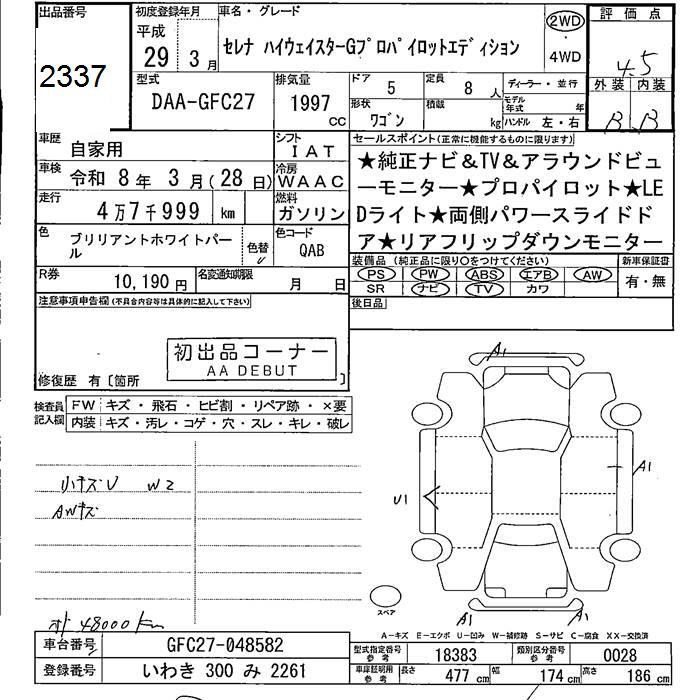 出品番号
2337
初度登録年月
平成
29 3月
車名・グレード
セレナ ハイウェイスターGプロパイロットエディション
2WD
・
4WD
評価点
4.5
外装 内装
B B
型式
DAA-GFC27
排気量
1997 cc
ドア 5
定員 8人
ディーラー・並行
形状 ワゴン
積載 kg
モデル年式 年
ハンドル 左・右
車歴 自家用
シフト IAT
車検 令和 8年 3月(28日)
冷房 WAAC
走行 4万7千999 km
燃料 ガソリン
色 ブリリアントホワイトパール
色替
色コード QAB
R券 10,190円
名変通知期限 月 日
セールスポイント(正常に機能するものに限ります)
★純正ナビ&TV&アラウンドビュ
ーモニター★プロパイロット★LE
Dライト★両側パワースライドド
ア★リアフリップダウンモニター
装備品(純正品に限り○をつけてください)
新車保証書
PS PW ABS エアB AW
有・無
SR ナビ TV カワ
後日品
注意事項申告欄(不具合内容等は具体的に記入して下さい)
初出品コーナー
AA DEBUT
修復歴 有〔箇所 〕
検査員記入欄
FW キズ・飛石・ヒビ割・リペア跡・×要
内装 キズ・汚レ・コゲ・穴・スレ・キレ・破レ
小キズU W2
AWキズ
48000km
A1
A1
U1
A1
A1
スペア
A-キズ E-エクボ U-凹み W-補修跡 S-サビ C-腐食 XX-交換済
車台番号 GFC27-048582
登録番号 いわき 300 み 2261
型式指定番号 参考 18383
類別区分番号 参考 0028
車庫証明用 参考 長さ 477 cm 幅 174 cm 高さ 186 cm